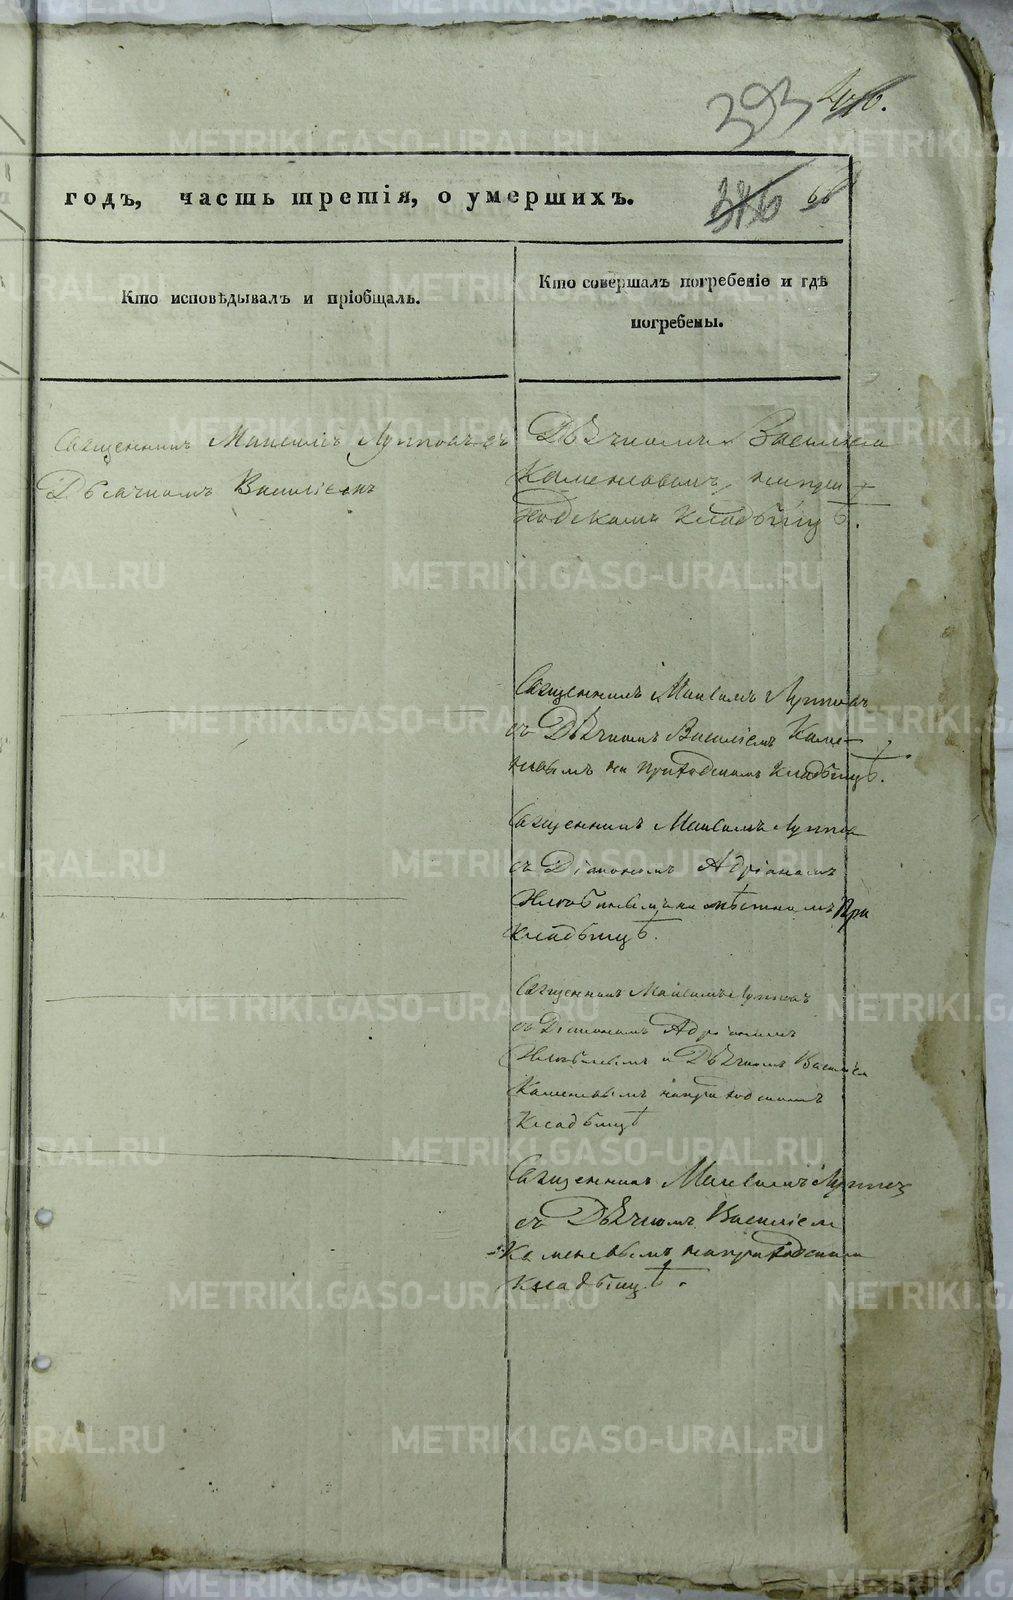 393
годъ, часть третія, о умершихъ.
Кто исповѣдывалъ и пріобщалъ.
Кто совершалъ погребеніе и гдѣ
погребены.
Священникъ Максимъ Лупповъ съ
Дьячкомъ Василіемъ
Дьячкомъ Василіемъ
Каменевымъ, на при-
ходскомъ Кладбищѣ.
Священникъ Максимъ Лупповъ
съ Дьячкомъ Василіемъ Каме-
невымъ на приходскомъ Кладбищѣ.
Священникъ Максимъ Луппов
съ Діакономъ Адріаномъ
на мѣстномъ При
Кладбищѣ.
Священникъ Максимъ Лупповъ
съ Діакономъ Адріаномъ
и Дьячкомъ Василіем
Каменевымъ на приходскомъ
Кладбищѣ
Священникъ Максимъ Луппов
съ Дьячкомъ Василіем
Каменевымъ на приходском
Кладбищѣ.
METRIKI.GASO-URAL.RU